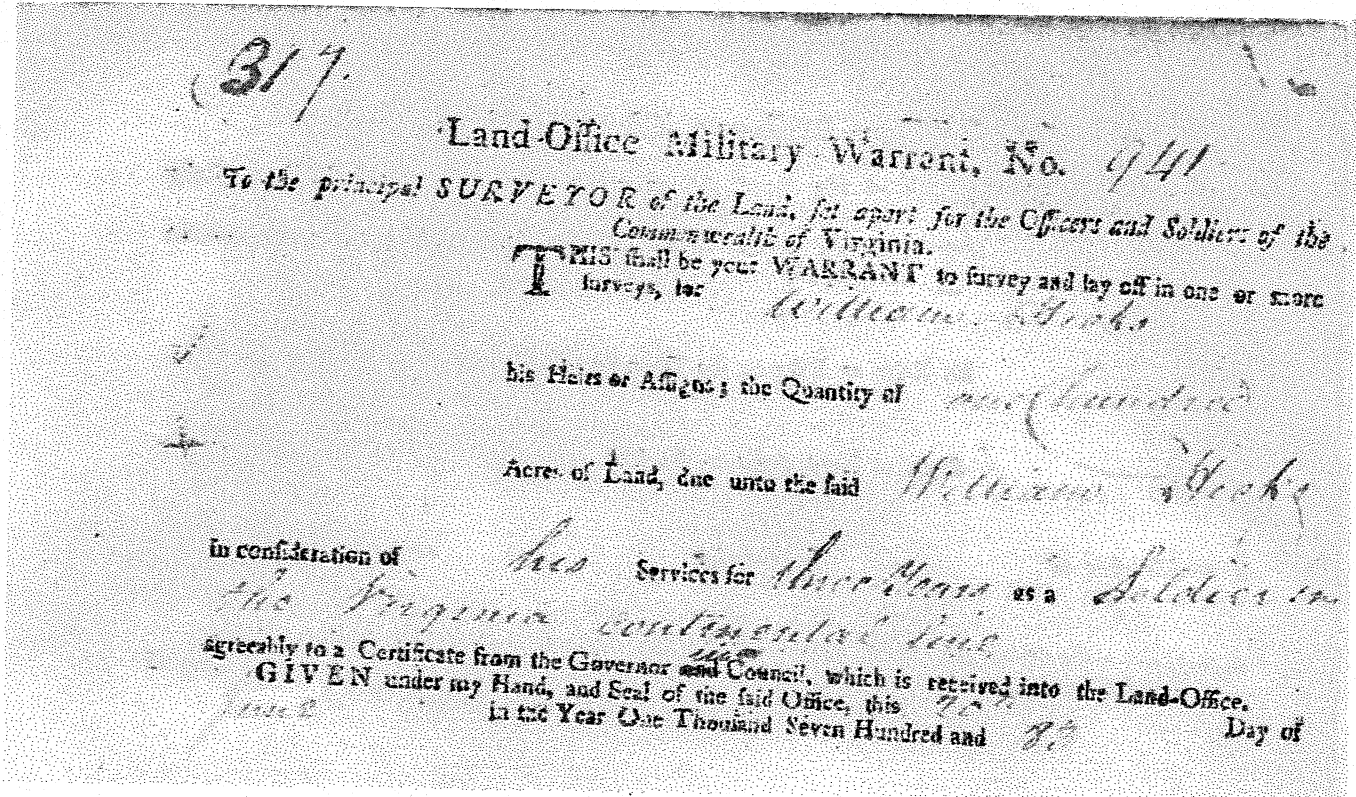 317
Land-Office Military Warrant, No. 941
To the principal SURVEYOR of the Land, ſet apart for the Officers and Soldiers of the
Commonwealth of Virginia.
THIS ſhall be your WARRANT to ſurvey and lay off in one or more
ſurveys, for William
his Heirs or Aſſigns; the Quantity of one hundred
Acres of Land, due unto the ſaid William
In conſideration of his Services for three Years as a Soldier in
the Virginia continental line
agreeably to a Certificate from the Governor and Council, which is received into the Land-Office.
GIVEN under my Hand, and Seal of the ſaid Office, this Day of
June in the Year One Thouſand Seven Hundred and 83